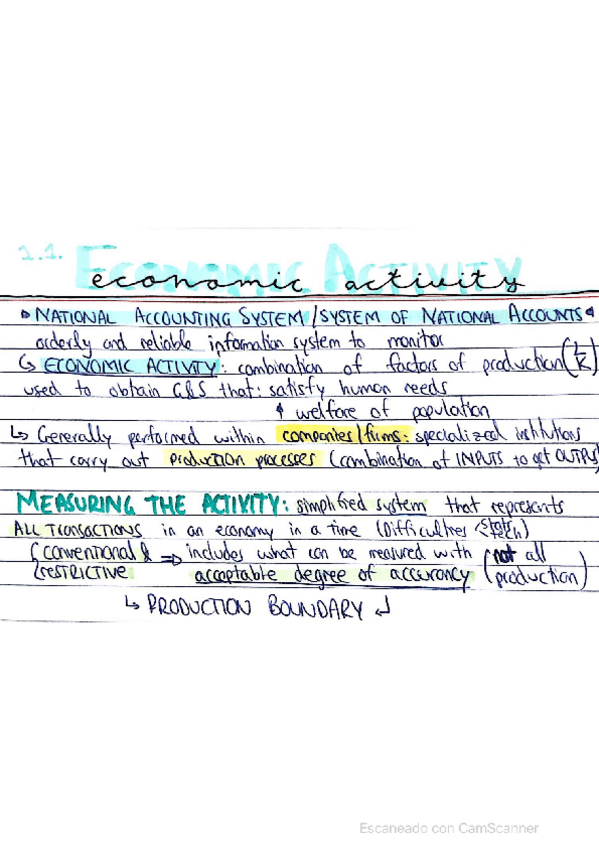 1.1. ECONOMIC ACTIVITY
economic activity
NATIONAL ACCOUNTING SYSTEM / SYSTEM OF NATIONAL ACCOUNTS
orderly and reliable information system to monitor
↳ ECONOMIC ACTIVITY: combination of factors of production (L K)
used to obtain G&S that: satisfy human needs
↑ welfare of population
↳ Generally performed within companies/firms: specialized institutions
that carry out production processes (combination of INPUTS to get OUTPUT)
MEASURING THE ACTIVITY: simplified system that represents
ALL TRANSACTIONS in an economy in a time (Difficulties < Stat tech)
conventional & ⇒ includes what can be measured with (not all
RESTRICTIVE acceptable degree of accurancy production)
↳ PRODUCTION BOUNDARY ↲
Escaneado con CamScanner